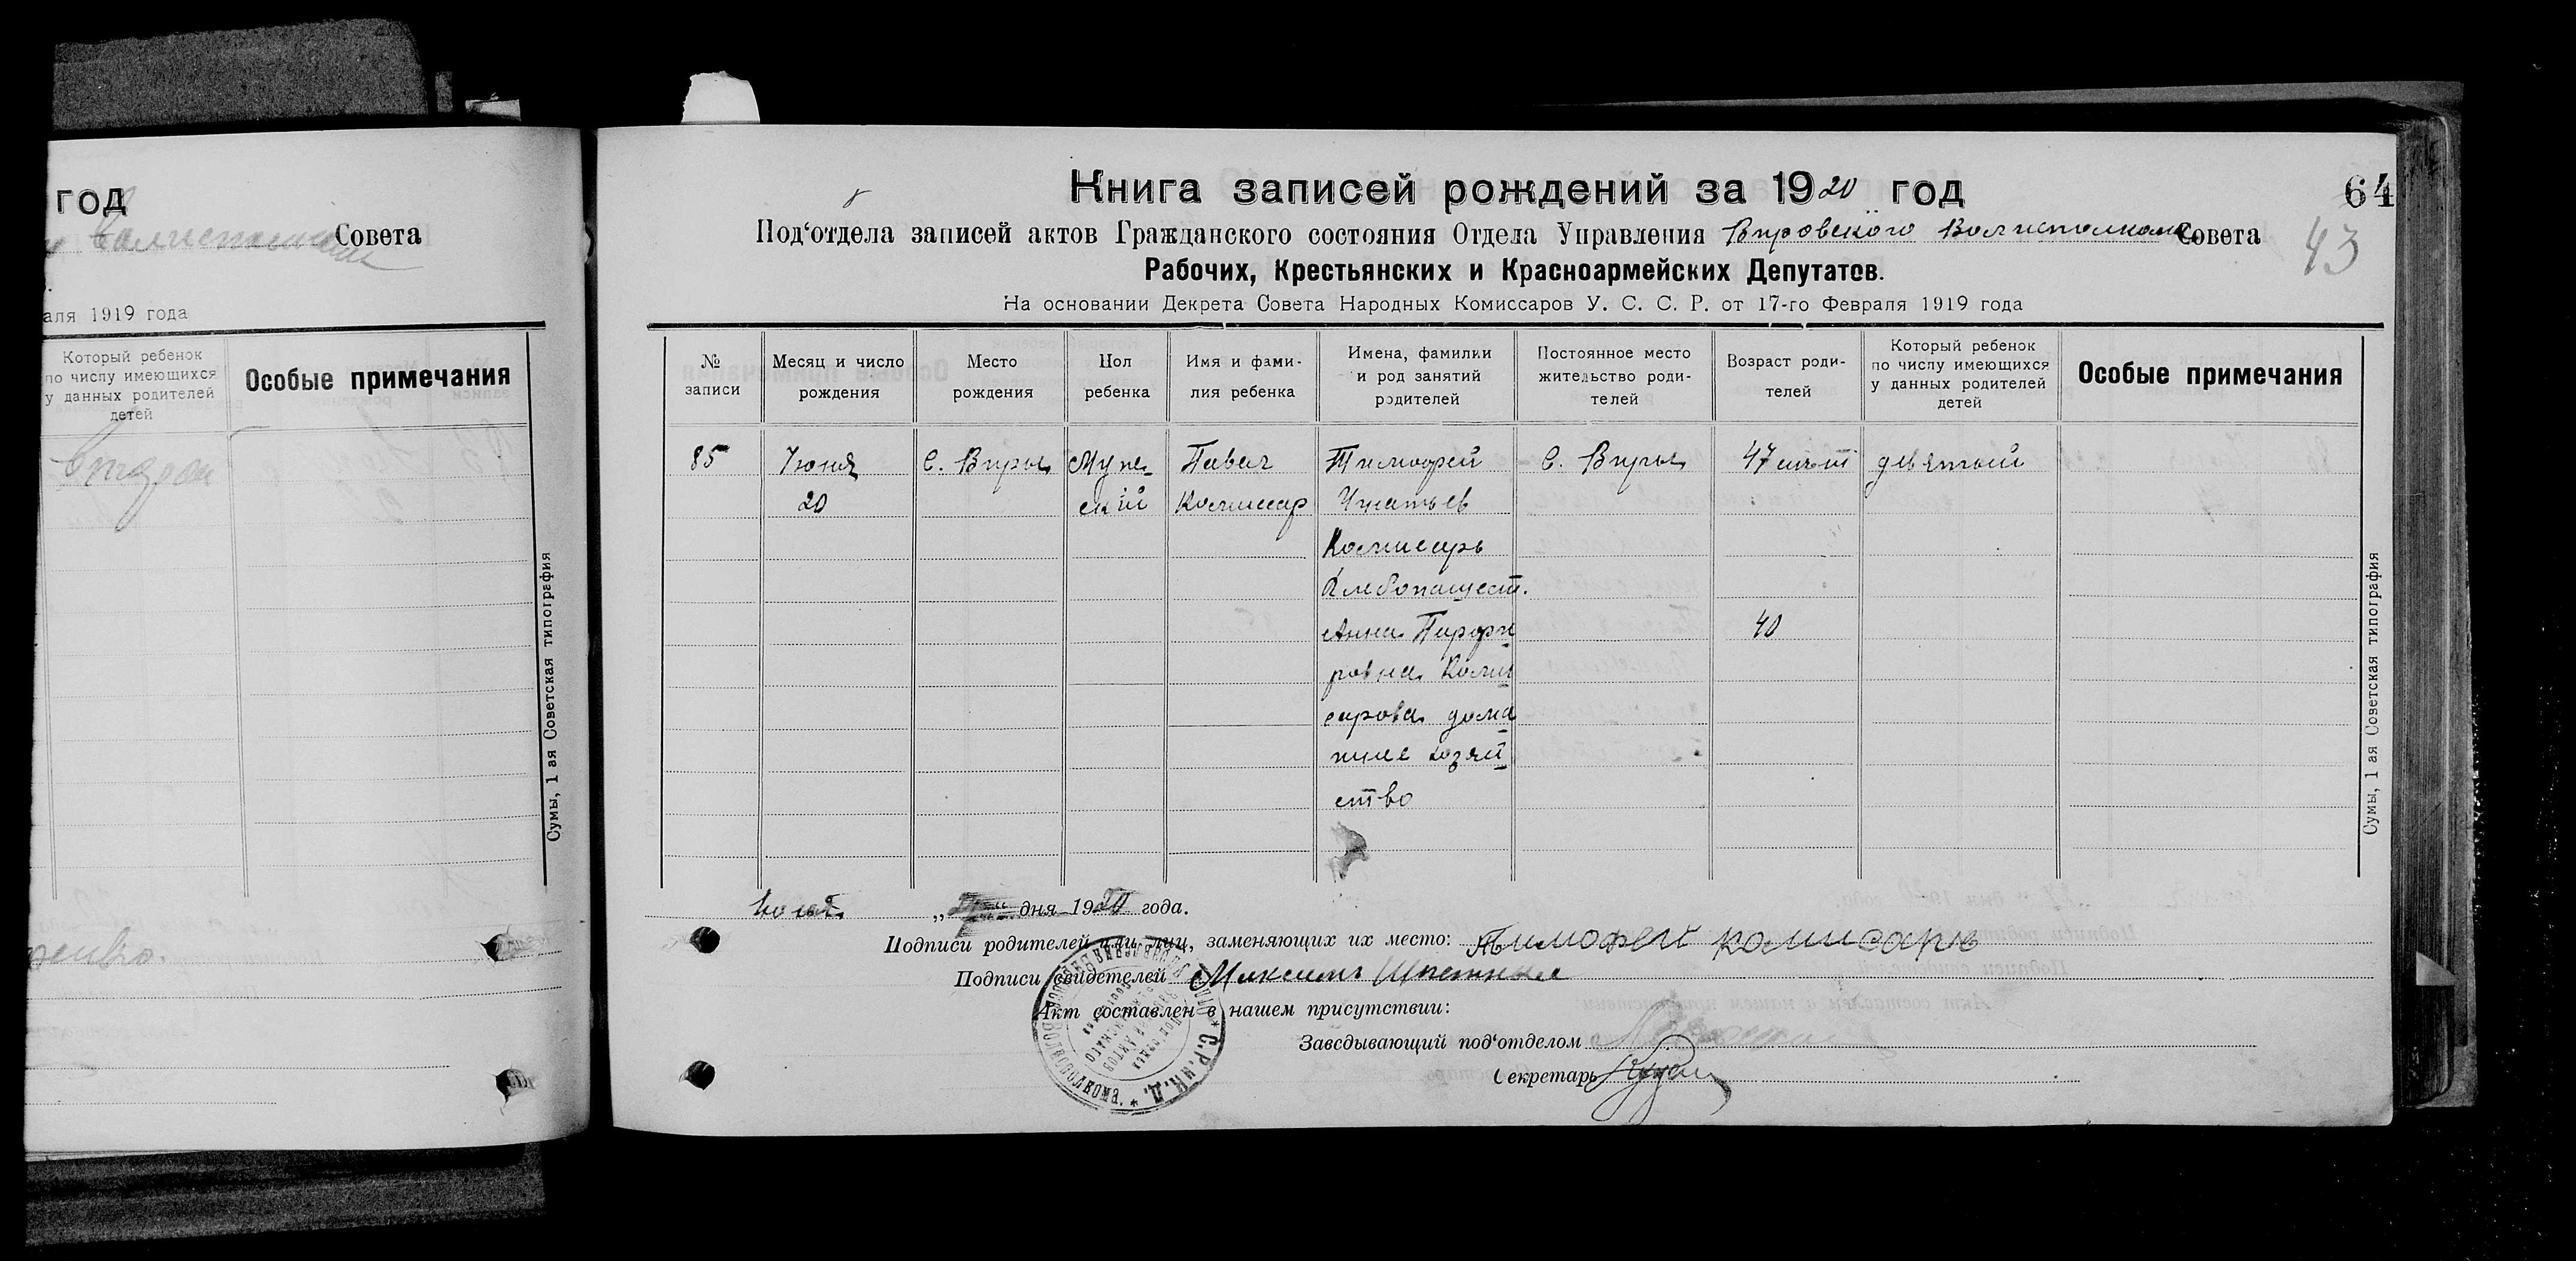 год
Совета
аля 1919 года
Который ребенок
по числу имеющихся
у данных родителей
детей
Особые примечания
Сумы, 1 ая Советская типография
Книга записей рождений за 1920 год
64
Под‘отдела записей актов Гражданского состояния Отдела Управления Вировского Волисполкома Совета
43
Рабочих, Крестьянских и Красноармейских Депутатов.
На основании Декрета Совета Народных Комиссаров У. С. С. Р. от 17-го Февраля 1919 года
№ записи
Месяц и число рождения
Место рождения
Пол ребенка
Имя и фами-
лия ребенка
Имена, фамилии
и род занятий
родителей
Постоянное место
жительство роди-
телей
Возраст роди-
телей
Который ребенок
по числу имеющихся
у данных родителей
детей
Особые примечания
85 Июня С. Виры Муже Павел Тимофей С. Виры 47 лет девятый
20 ский Комиссар Игнатьев
Комисарь
Хлебопашест.
Анна Парфи 40
ровна Коми
сарова дома
шнее хозяй
ство
Сумы, 1 ая Советская типография
дня 1920 года.
Подписи родителей или лиц, заменяющих их место: Тимофей комисарь
Подписи свидетелей Максимъ
Акт составлен в нашем присутствии:
Заведывающий под‘отделом
Секретарь
* С.Р. и К.Д. *